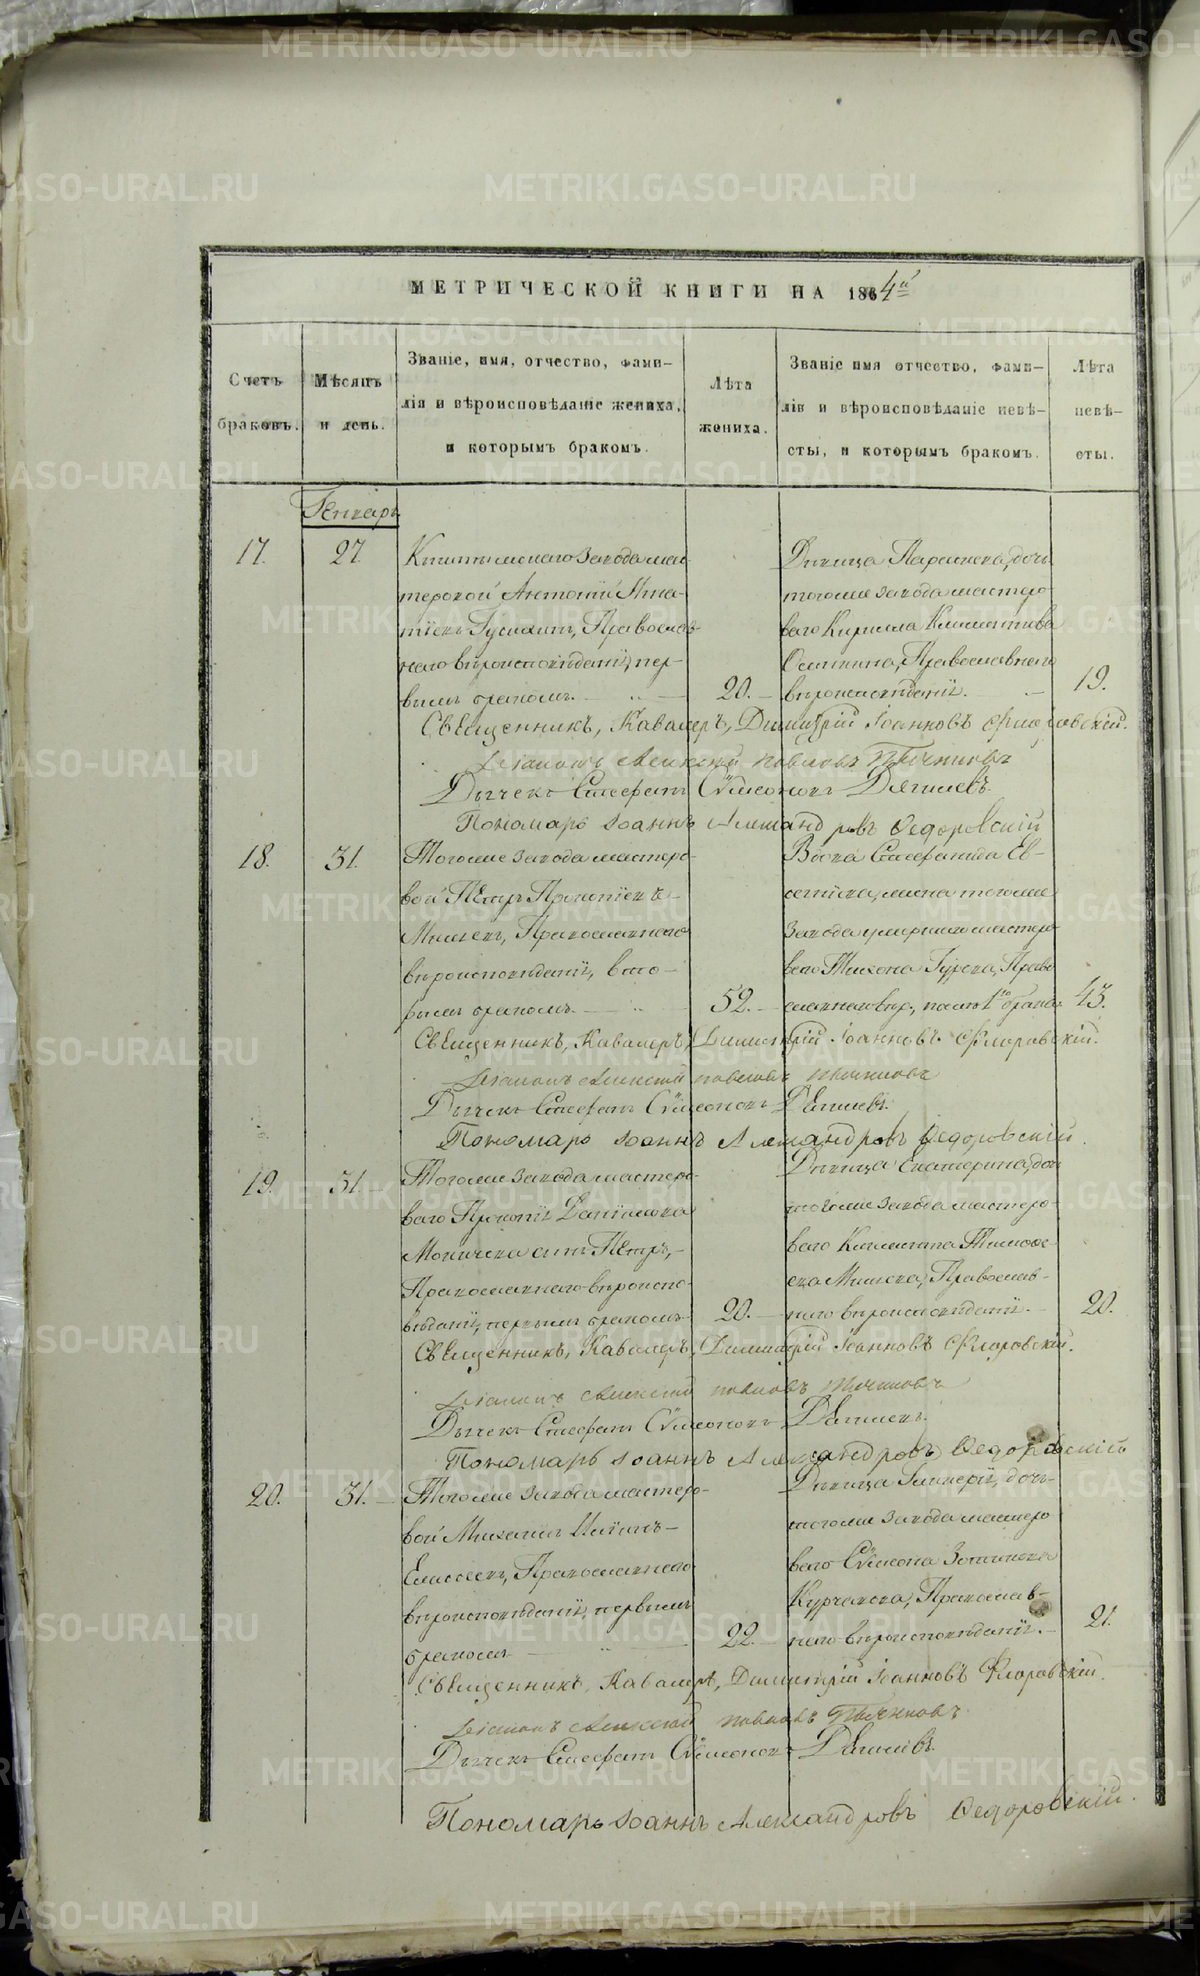 МЕТРИЧЕСКОЙ КНИГИ НА 1864й
Счетъ браковъ.
Мѣсяцъ и день.
Званіе, имя, отчество, фами-
лія и вѣроисповѣданіе жениха,
и которымъ бракомъ.
Лѣта
жениха.
Званіе имя отчество, фами-
лія и вѣроисповѣданіе невѣ-
сты, и которымъ бракомъ.
Лѣта
невѣ-
сты.
Генварь
17.
27
Кыштымскаго завода мас
теровой Антоній Игна-
тіевъ Гусихинъ, Православ-
наго вѣроисповѣданія, пер-
вымъ бракомъ.
20.
Дѣвица Параскева, дочь
тогоже завода мастеро
ваго Кирилла Климентова
Православнаго
вѣроисповѣданія.
19.
Священникъ, Кавалеръ, Димитрій Іоанновъ Флоровскій.
Діаконъ Алексей Павловъ
Дьячекъ Стефанъ Сѵмеоновъ
Пономарь Іоаннъ Александровъ Ѳедоровскій
18.
31.
Тогоже завода мастеро-
вой Пётръ Прокопіевъ
Православнаго
вѣроисповѣданія, вто-
рымъ бракомъ.
52.
Вдова Стефанида Ев-
сегніева, жена тогоже
завода умершаго мастеро
ваго Тихона Гурьева, Право
славнаго вѣр., послѣ 1го брака
43.
Священникъ, Кавалеръ, Димитрій Іоанновъ Флоровскій.
Діаконъ Алексей Павловъ
Дьячекъ Стефанъ Сѵмеоновъ
Пономарь Іоаннъ Александровъ Ѳедоровскій.
19.
31.
Тогоже завода мастеро-
ваго Прокопія Даніилова
сынъ Пётръ,
Православнаго вѣроиспо-
вѣданія, первымъ бракомъ
20.
Дѣвица Екатерина, доч
тогоже завода мастеро-
ваго Климента Тимоѳе-
ева Православ-
наго вѣроисповѣданія.
20.
Священникъ, Кавалеръ, Димитрій Іоанновъ Флоровскій.
Діаконъ Алексей Павловъ
Дьячекъ Стефанъ Сѵмеоновъ
Пономарь Іоаннъ Александровъ Ѳедоровскій
20.
31.
Тогоже завода мастеро-
вой Михаилъ Ильинъ
Елисеевъ, Православнаго
вѣроисповѣданія, первымъ
бракомъ
22.
Дѣвица Гликерія, дочь
тогоже завода мастеро
ваго Сѵмеона Зотикова
Курчавова, Православ-
наго вѣроисповѣданія.
21.
Священникъ, Кавалеръ, Димитрій Іоанновъ Флоровскій.
Діаконъ Алексей Павловъ
Дьячекъ Стефанъ Сѵмеоновъ
Пономарь Іоаннъ Александровъ Ѳедоровскій.
METRIKI.GASO-URAL.RU